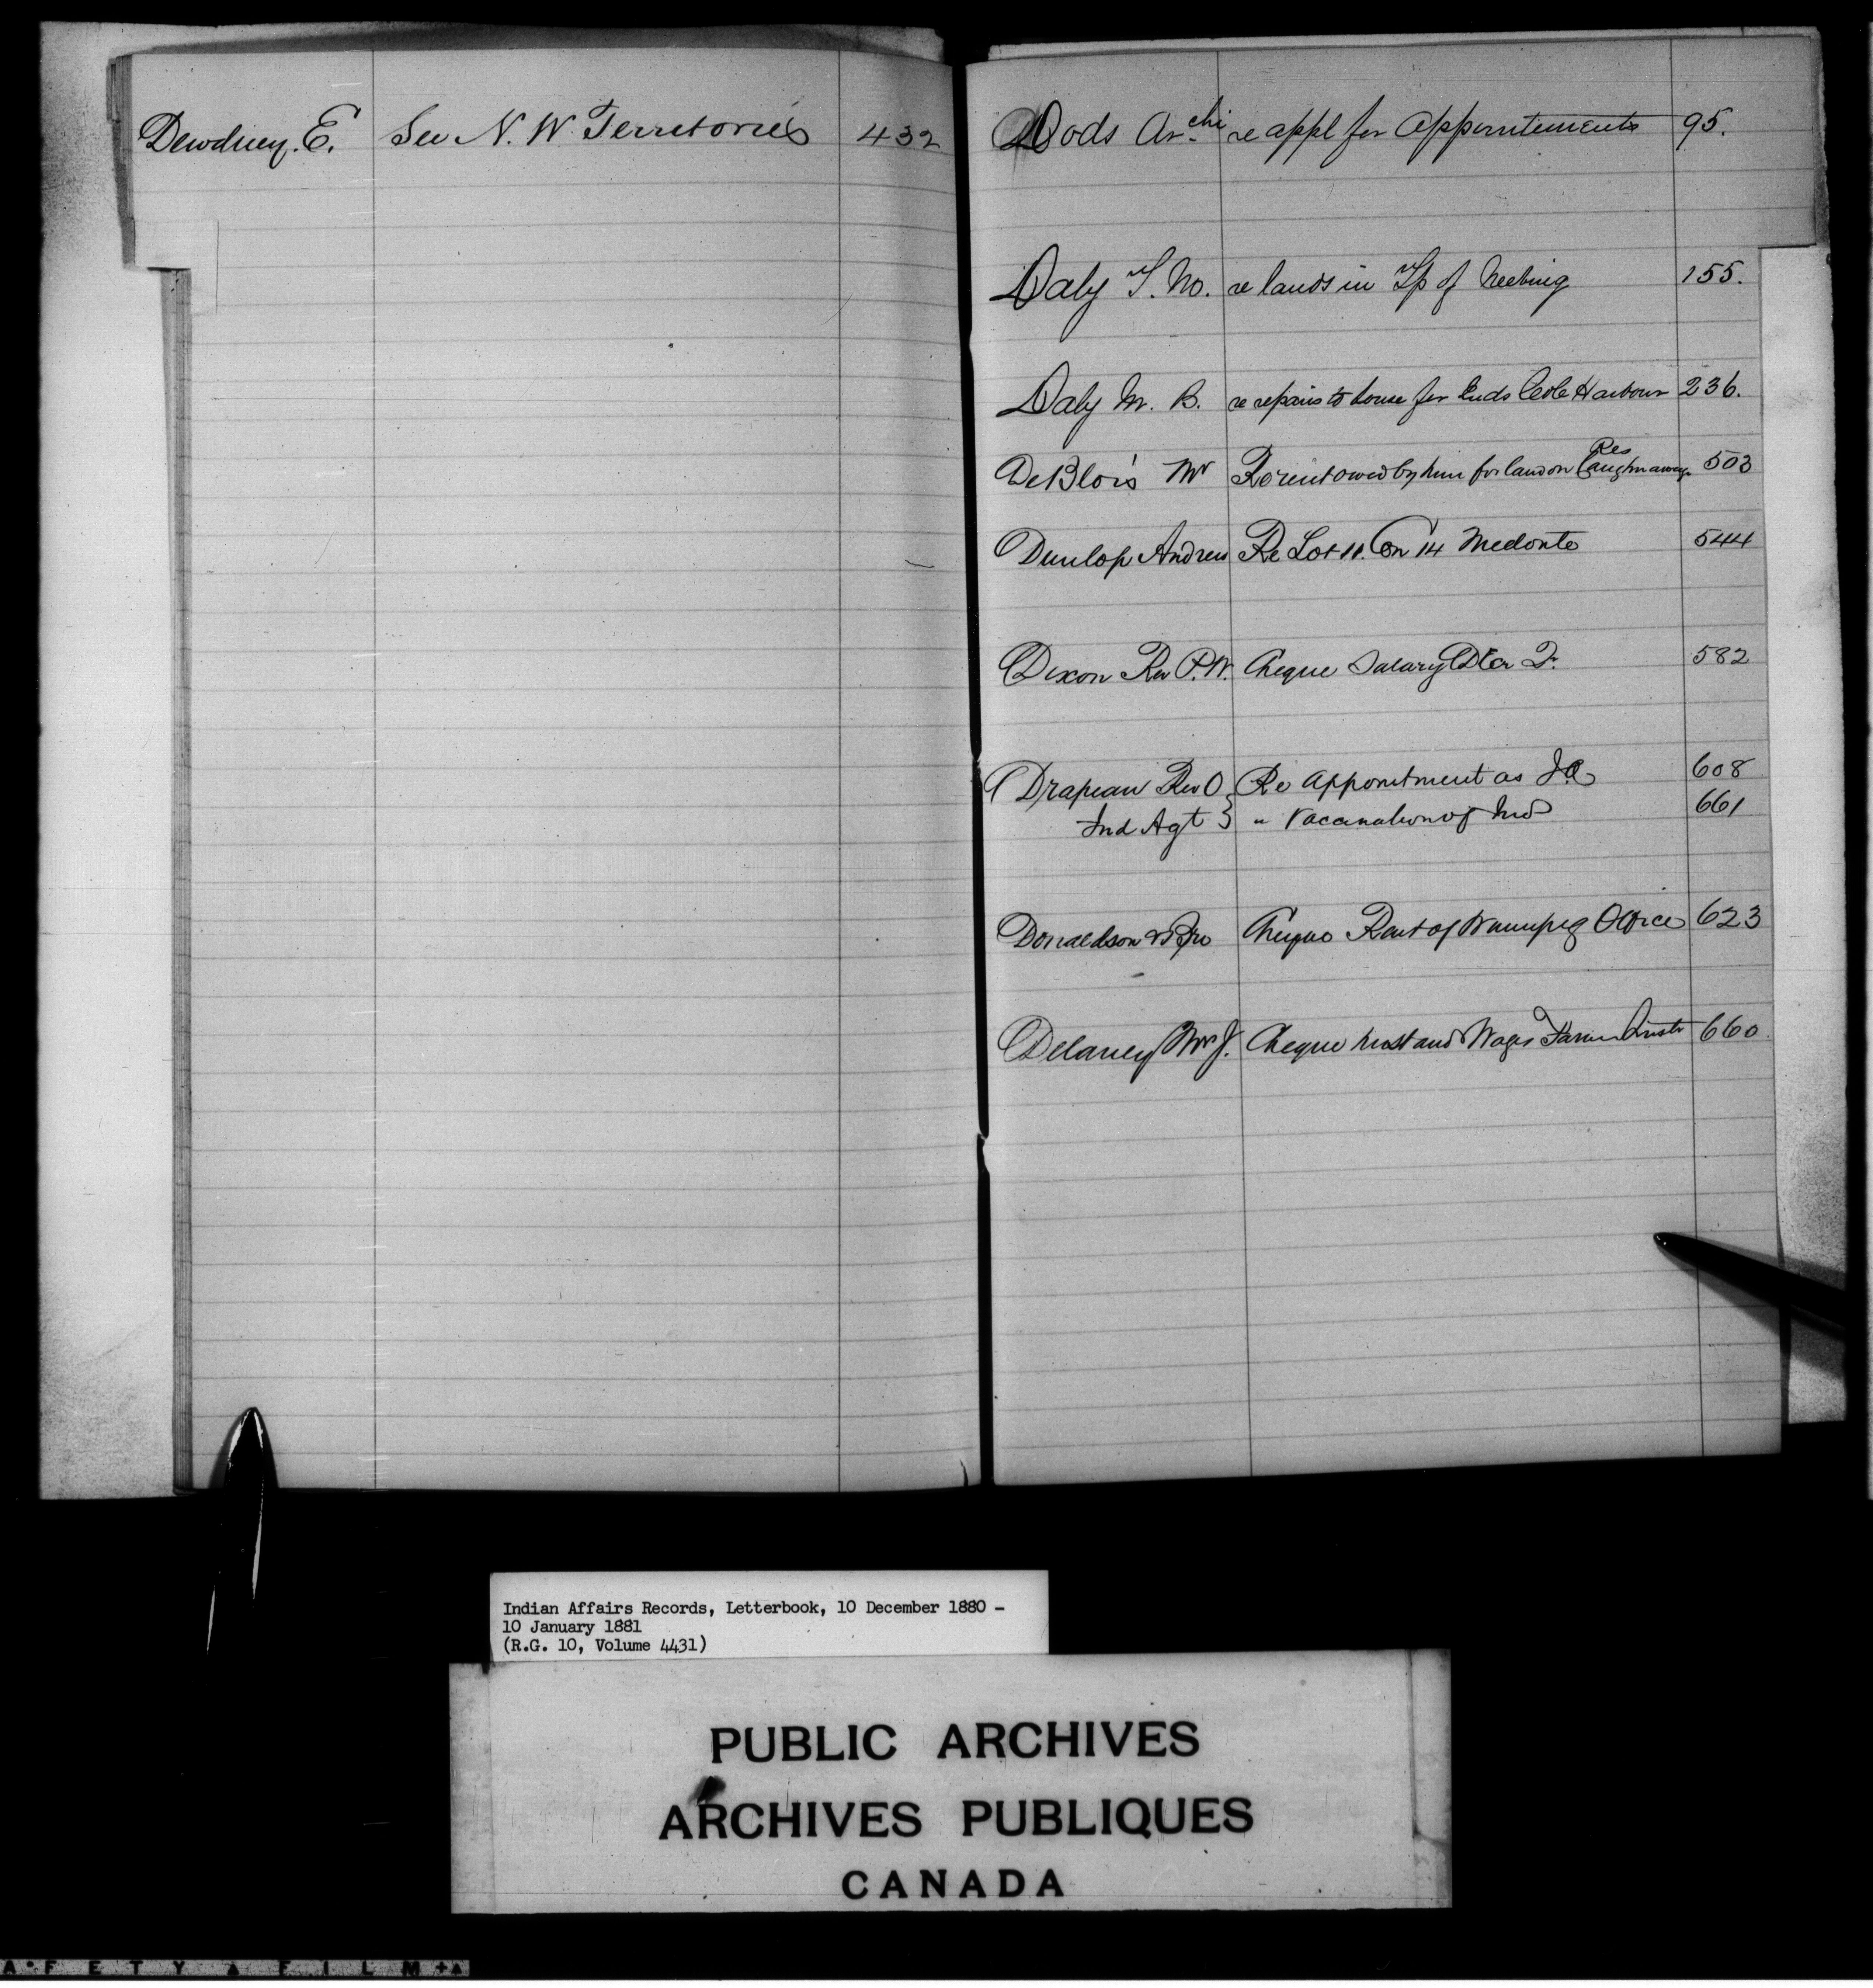 Dewdney. E. See N. W. Territories 432
Dods Archi re appl for appointements 95.
Daly T. M. re lands in Tp of Neebing 155.
Daly M. B. re repairs to house for Inds Cole Harbour 236.
Res
DeBlois Mr Re rent owed by him for land on Caughnawaga 503
Dunlop Andrew Re Lot 11. Con 14 Medonte 544
Dixon Rev P. W. Cheque Salary Dec Qr. 582
Drapeau Rev O Re appointment as J.P. 608
Ind Agt } " Vaccination of Inds 661
Donaldson & Bro Cheque Rent of Winnipeg Office 623
Delaney Mrs J. Cheque husband Wages Farm Instr 660
Indian Affairs Records, Letterbook, 10 December 1880 -
10 January 1881
(R.G. 10, Volume 4431)
PUBLIC ARCHIVES
ARCHIVES PUBLIQUES
CANADA
A F E T Y ▲ F I L M